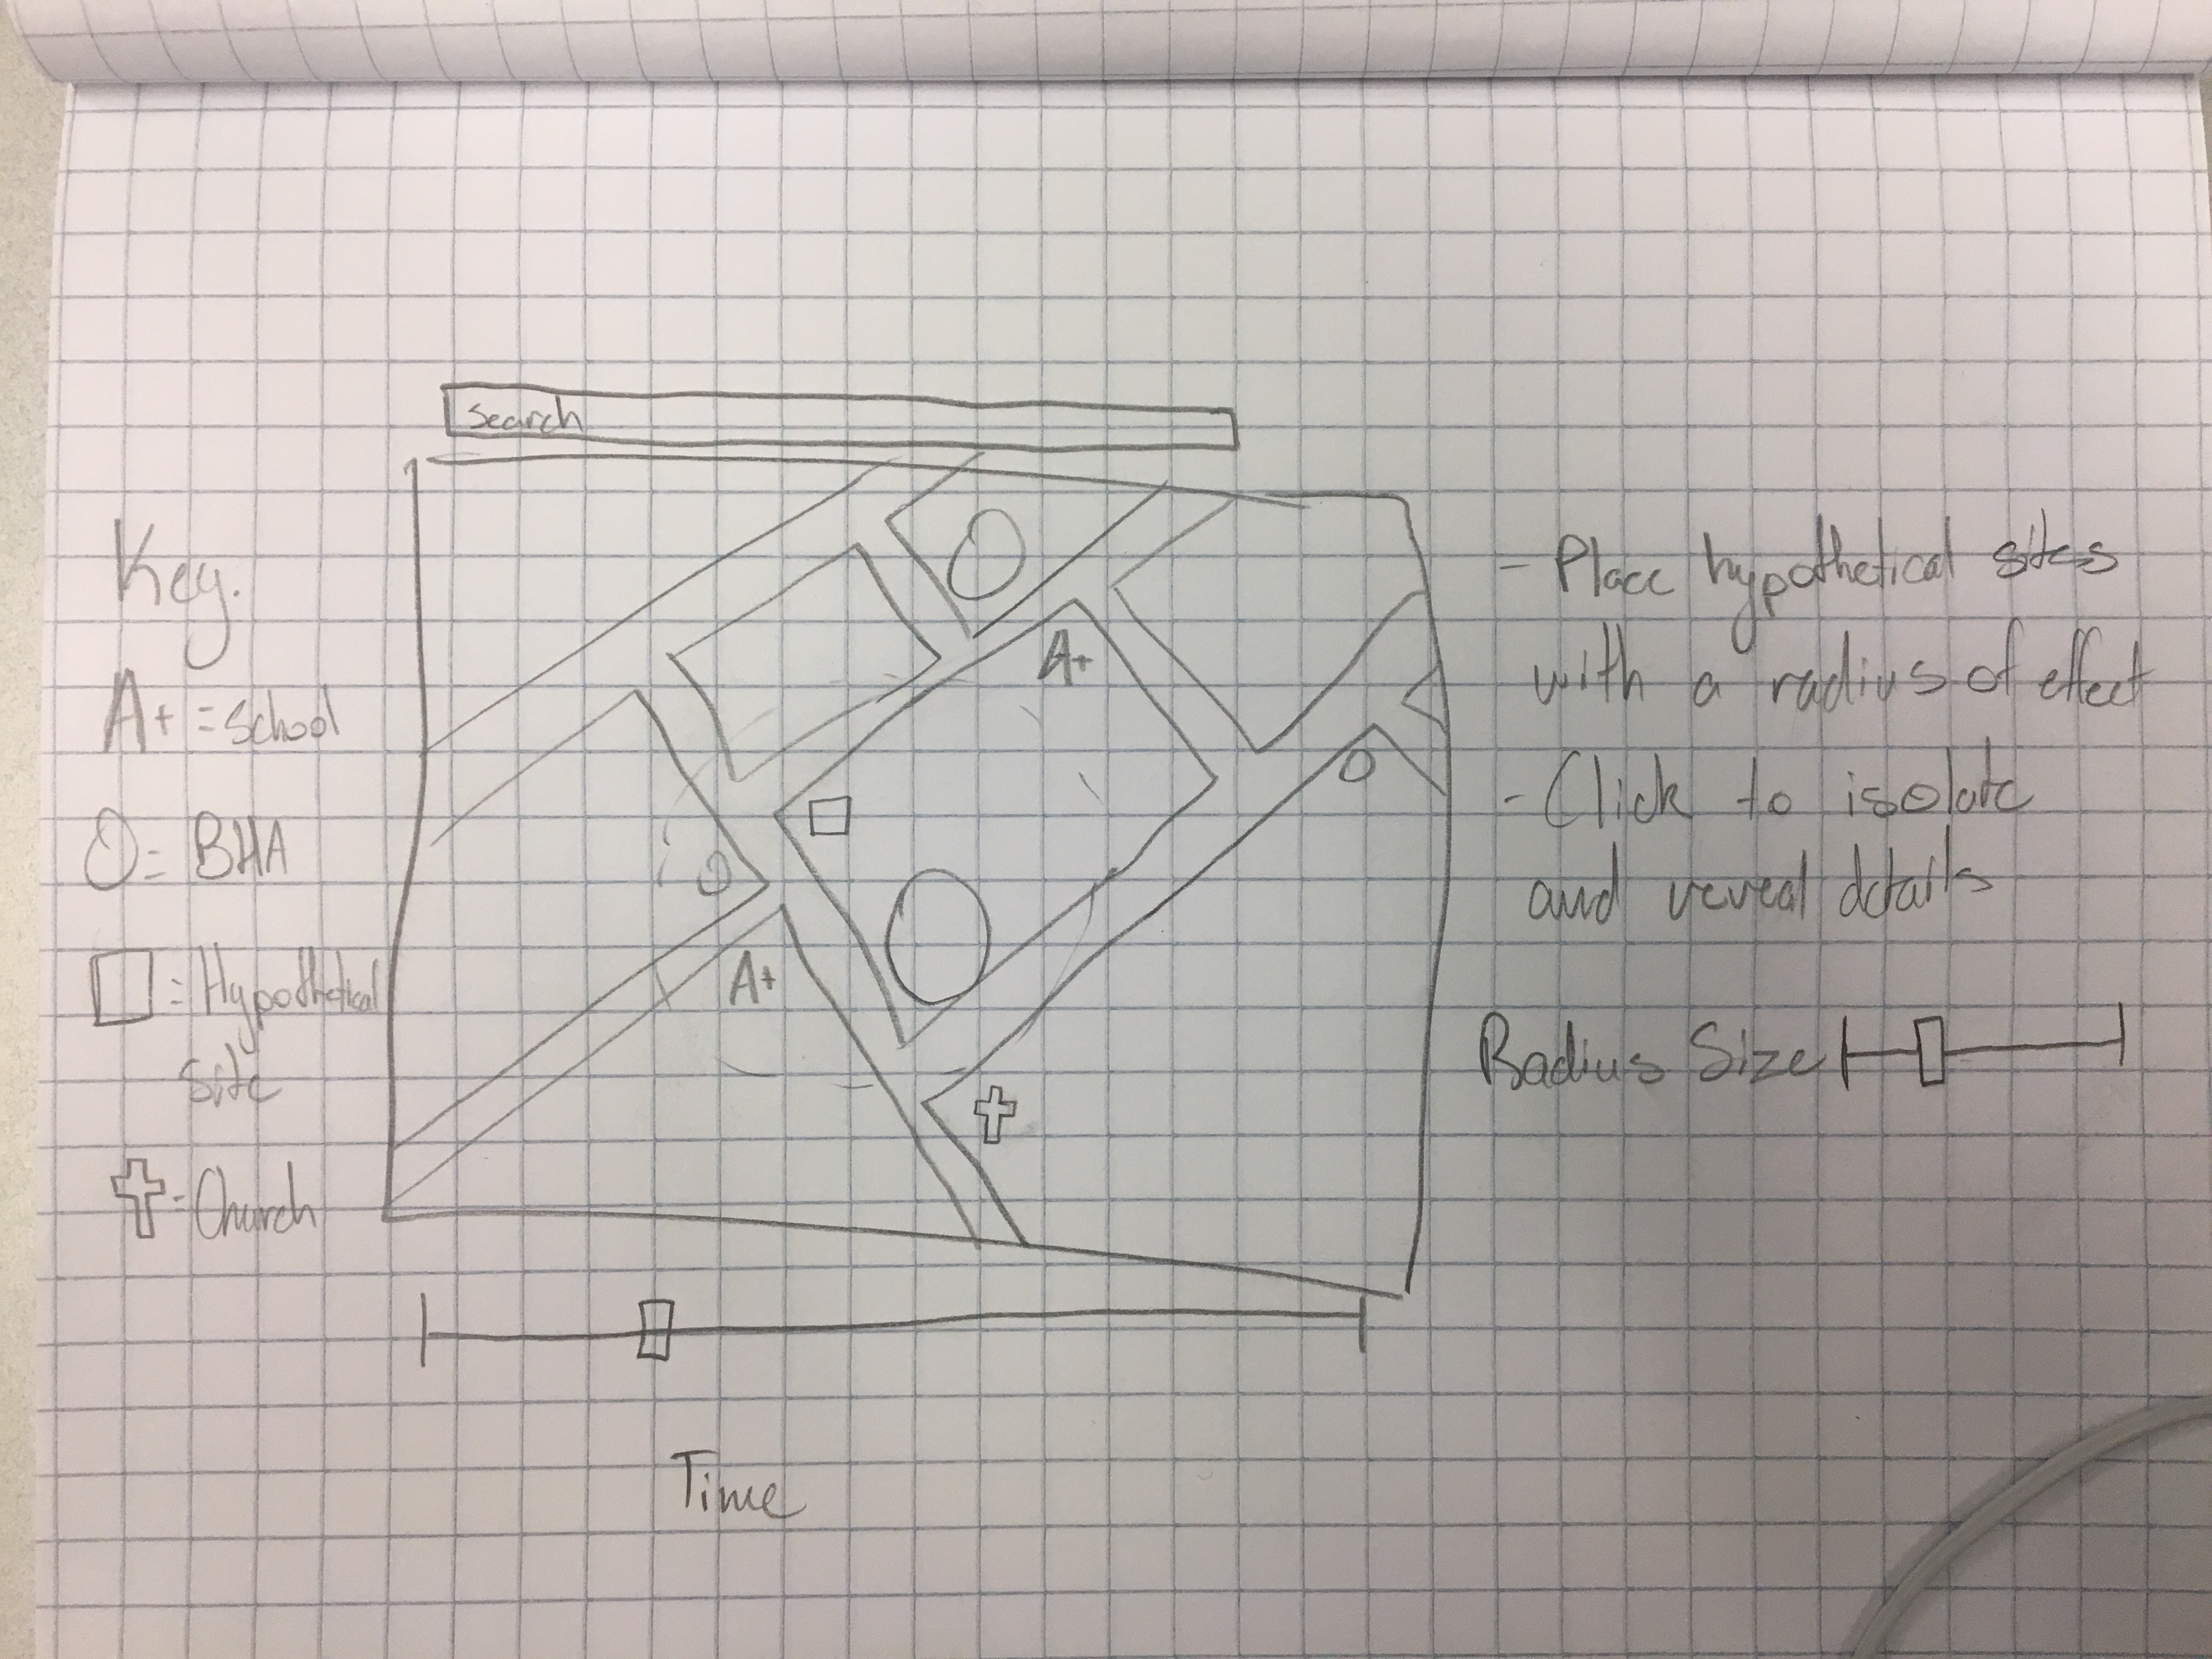 Search
Key.
A+ = School
O = BHA
□ = Hypothetical
Site
✝ = Church
A+
A+
- Place hypothetical sites
with a radius of effect
- Click to isolate
and reveal details
Radius Size
Time